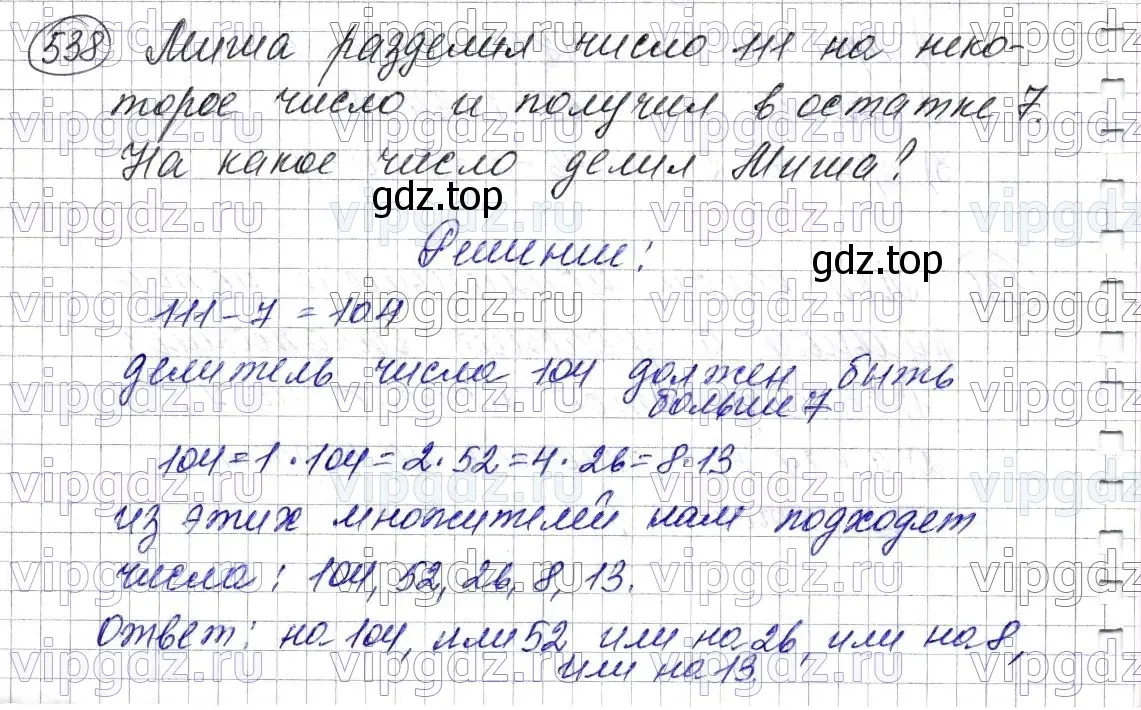 538 Миша разделил число 111 на неко-
торое число и получил в остатке 7.
На какое число делил Миша?
gdz.top
Решение:
gdz.top
111 - 7 = 104
делитель числа 104 должен быть
больше 7
104 = 1 · 104 = 2 · 52 = 4 · 26 = 8 · 13
из этих множителей нам подходят
числа: 104, 52, 26, 8, 13.
Ответ: на 104, или 52 или на 26, или на 8,
или на 13.
vipgdz.ru